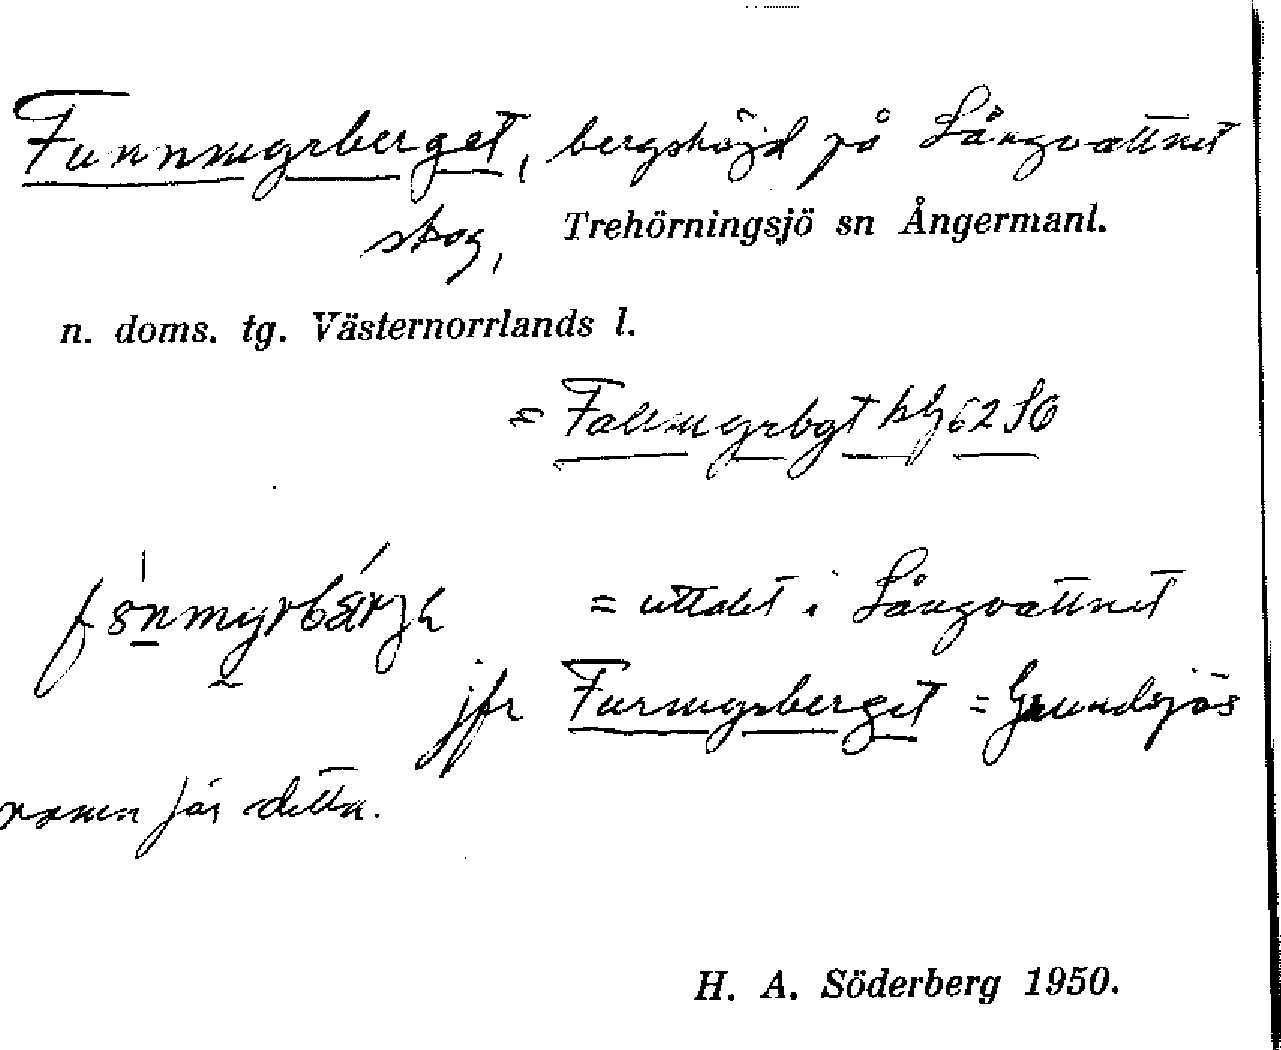 Funnmyrberget, bergshöjd på Långvattnet
skog, Trehörningsjö sn Ångermanl.
n. doms. tg. Västernorrlands l.
= Fallmyrbgt bl 62 SO
= uttalet i Långvattnet
jfr Furmyrberget = Grundsjös
namn för detta.
H. A. Söderberg 1950.